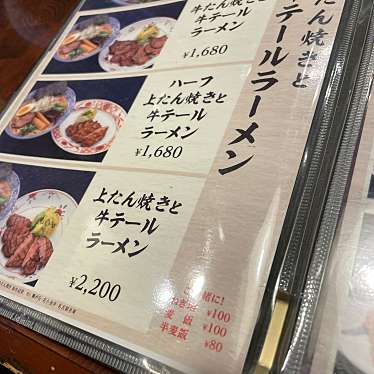 たん焼きと
テールラーメン
牛たん焼きと
牛テール
ラーメン
¥1,680
ハーフ
上たん焼きと
牛テール
ラーメン
¥1,680
上たん焼きと
牛テール
ラーメン
¥2,200
ご一緒に!
¥100
麦飯 ¥100
半麦飯 ¥80